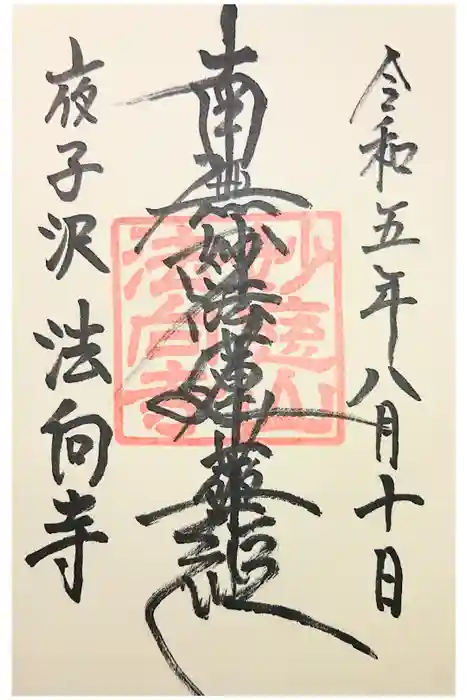 令和五年八月十日
南無妙法蓮華経
夜子沢 法向寺